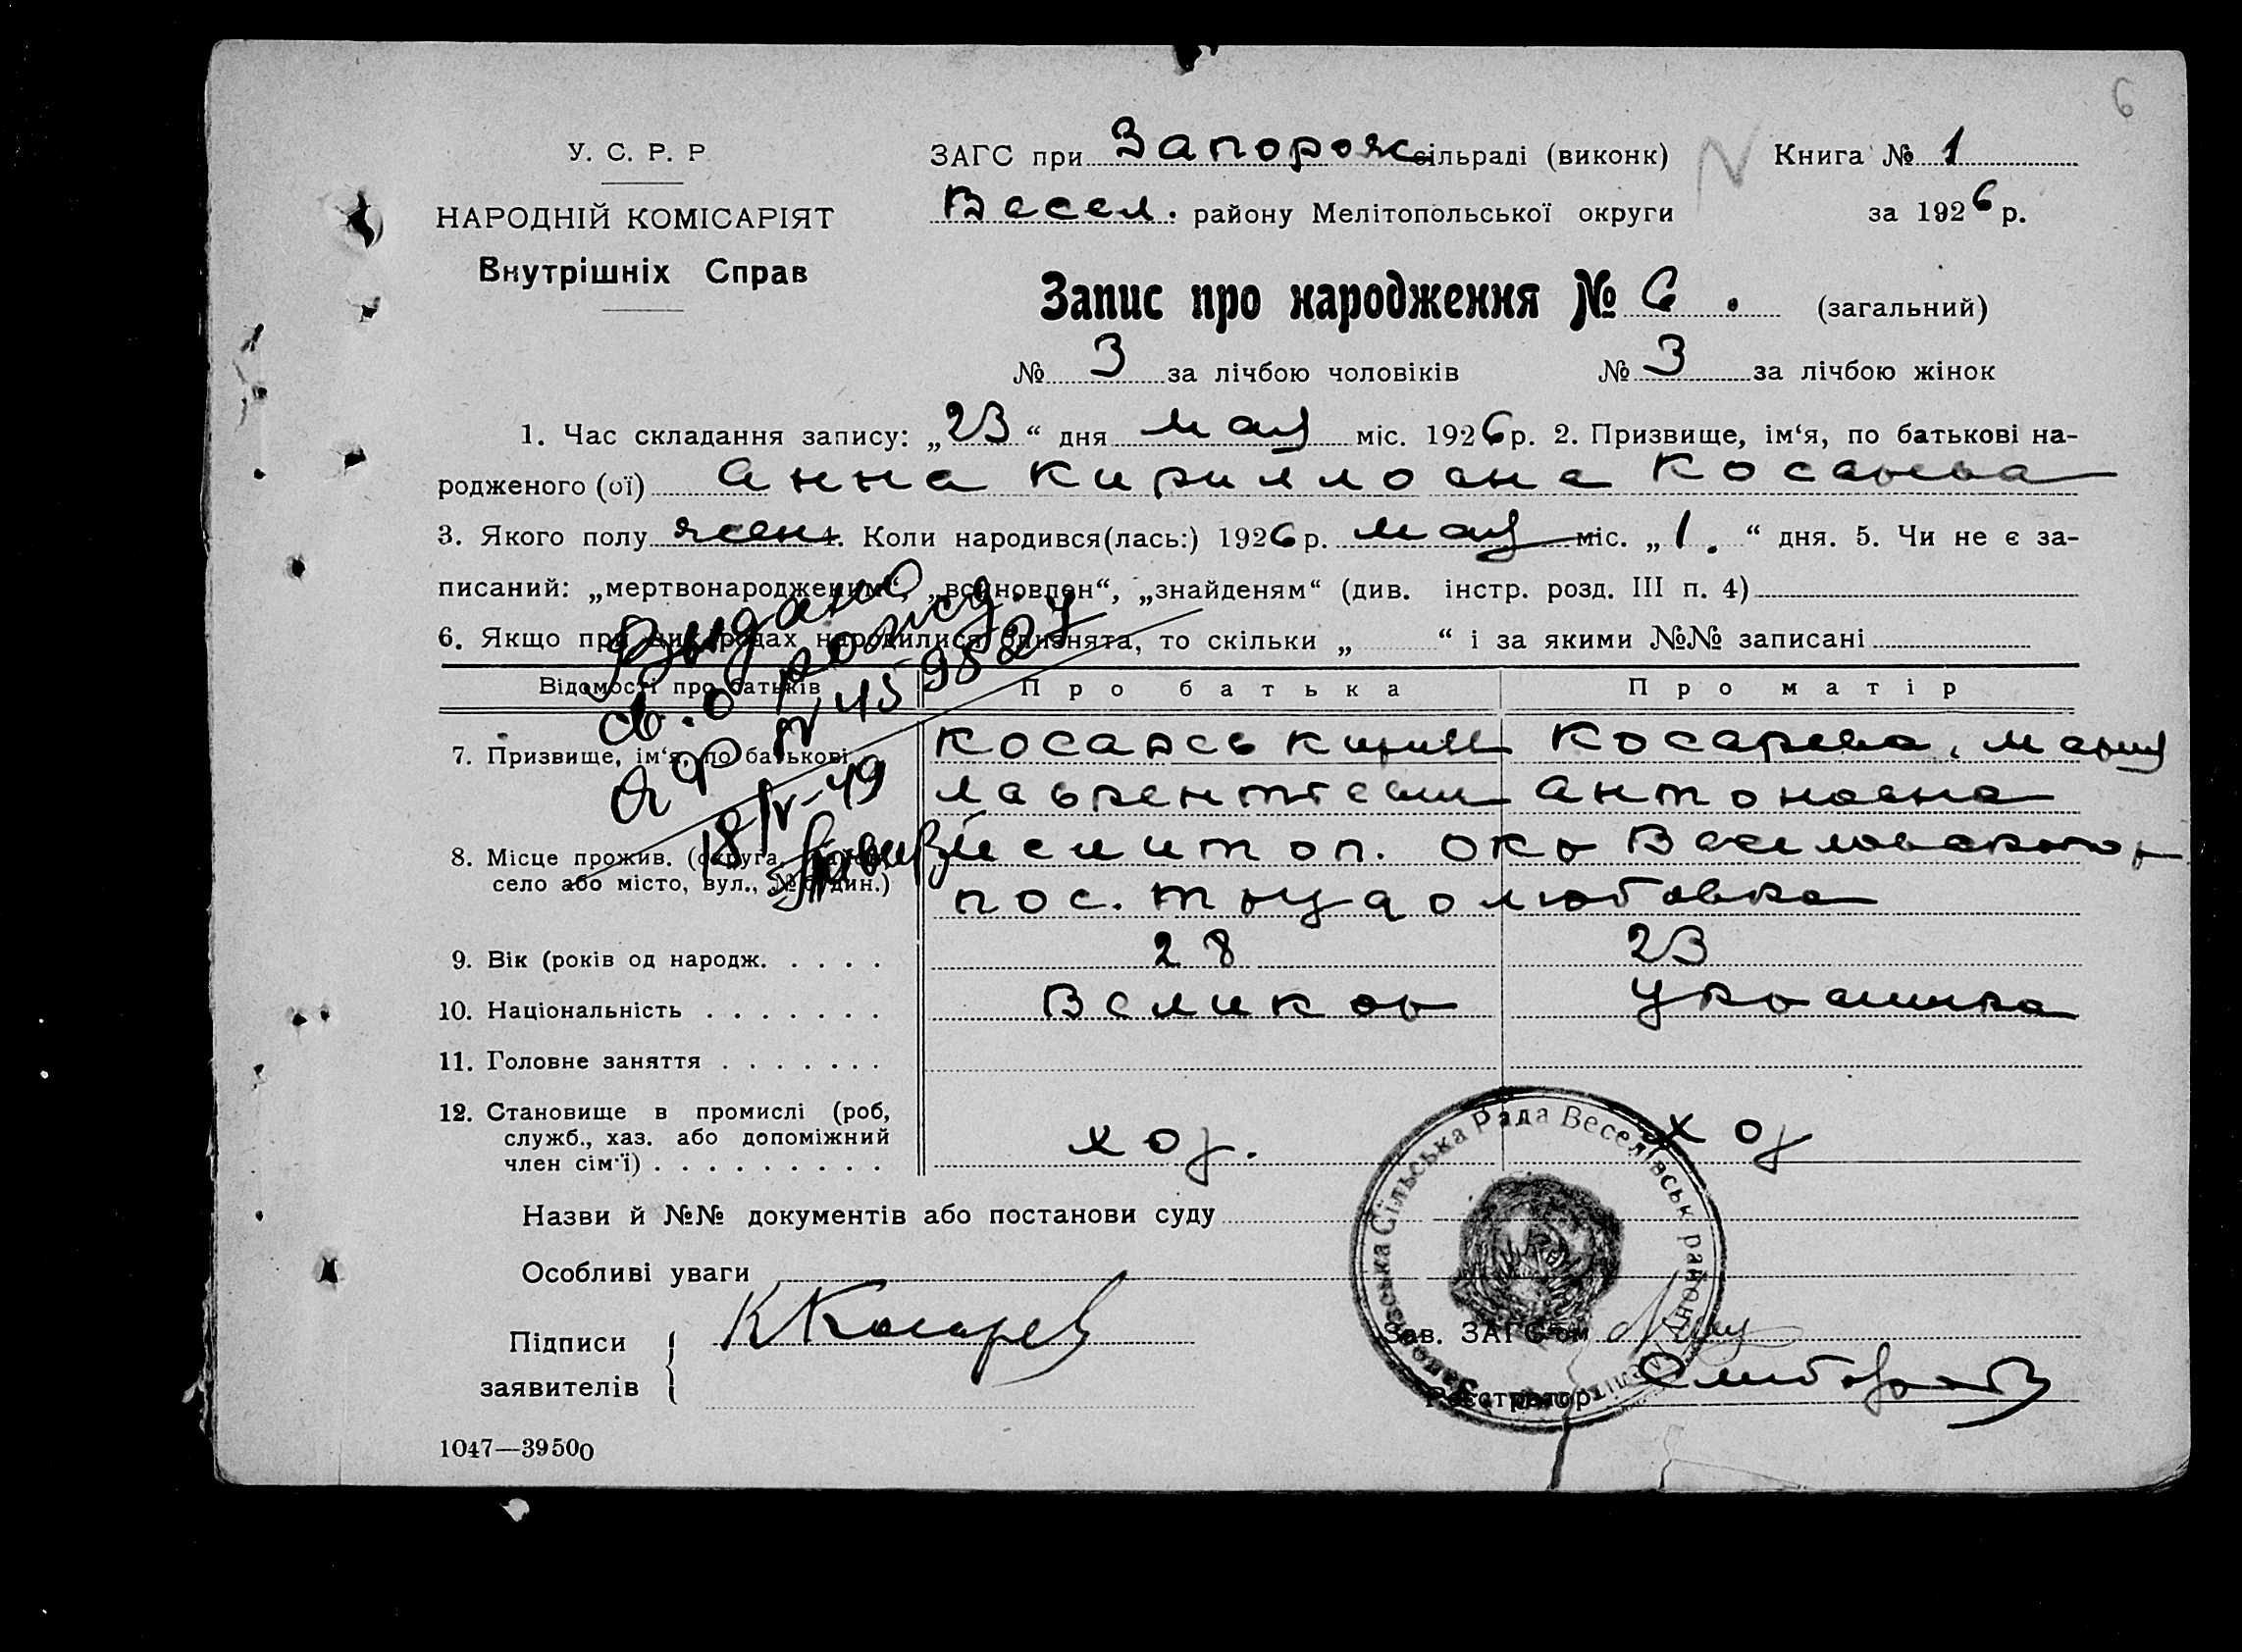 6
У. С. Р. Р.
НАРОДНІЙ КОМІСАРІЯТ
Внутрішніх Справ
ЗАГС при Запорож сільраді (виконк) Книга № 1
Весел. району Мелітопольської округи за 1926 р.
Запис про народження № 6. (загальний)
№ 3 за лічбою чоловіків № 3 за лічбою жінок
1. Час складання запису: „23“ дня мая міс. 1926 р. 2. Призвище, ім‘я, по батькові на-
родженого (ої) Анна Кирилловна Косарева
3. Якого полу жен 4. Коли народився(лась:) 1926 р. мая міс. „1.“ дня. 5. Чи не є за-
писаний: „мертвонародженим“, „всиновлен“, „знайденям“ (див. інстр. розд. III п. 4)
6. Якщо при цих родах народилися близнята, то скільки „ “ і за якими №№ записані
Выдано
св. о рожд.
18/IV-49
Відомості про батьків Про батька Про матір
7. Призвище, ім‘я, по батькові Косарев Кирилл Косарева, Мария
Лаврентьевич Антоновна
8. Місце прожив. (округа, район, Мелитоп. окр Веселовского р
село або місто, вул., № будин.) пос. Трудолюбовка
9. Вік (років од народж. . . . . 28 23
10. Національність . . . . . . . Великор Украинка
11. Головне заняття . . . . . . .
12. Становище в промислі (роб, служб., хаз. або допоміжний член сім‘ї) . . . . . . . . . хоз. хоз
Назви й №№ документів або постанови суду
Особливі уваги
Підписи заявителів К Косарев
Сільська Рада Веселівськ району
Зав. ЗАГС‘ом
Реєстратор
1047—39500